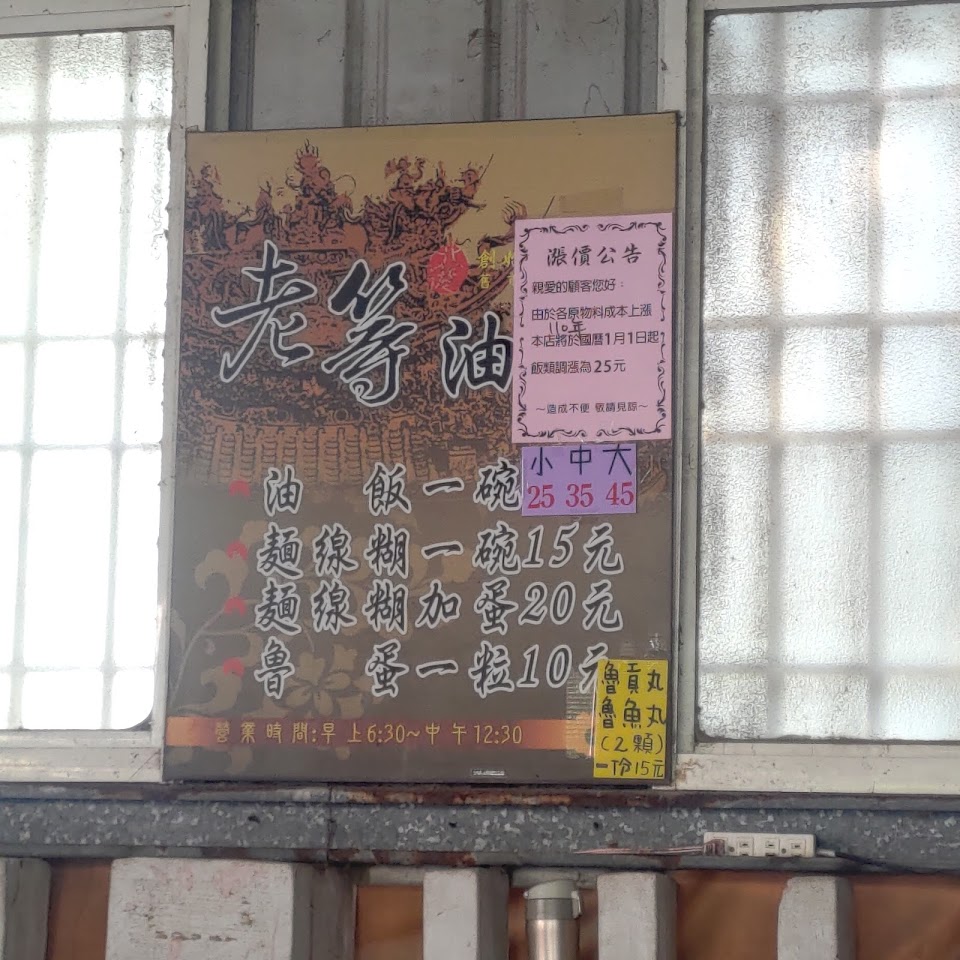 老等油
創
舊
漲價公告
親愛的顧客您好：
由於各原物料成本上漲
110年
本店將於國曆1月1日起
飯類調漲為25元
～造成不便 敬請見諒～
小 中 大
25 35 45
油 飯一碗
麵線糊一碗15元
麵線糊加蛋20元
魯 蛋一粒10元
營業時間:早上6:30~中午12:30
魯貢丸
魯魚丸
(2顆)
一份15元